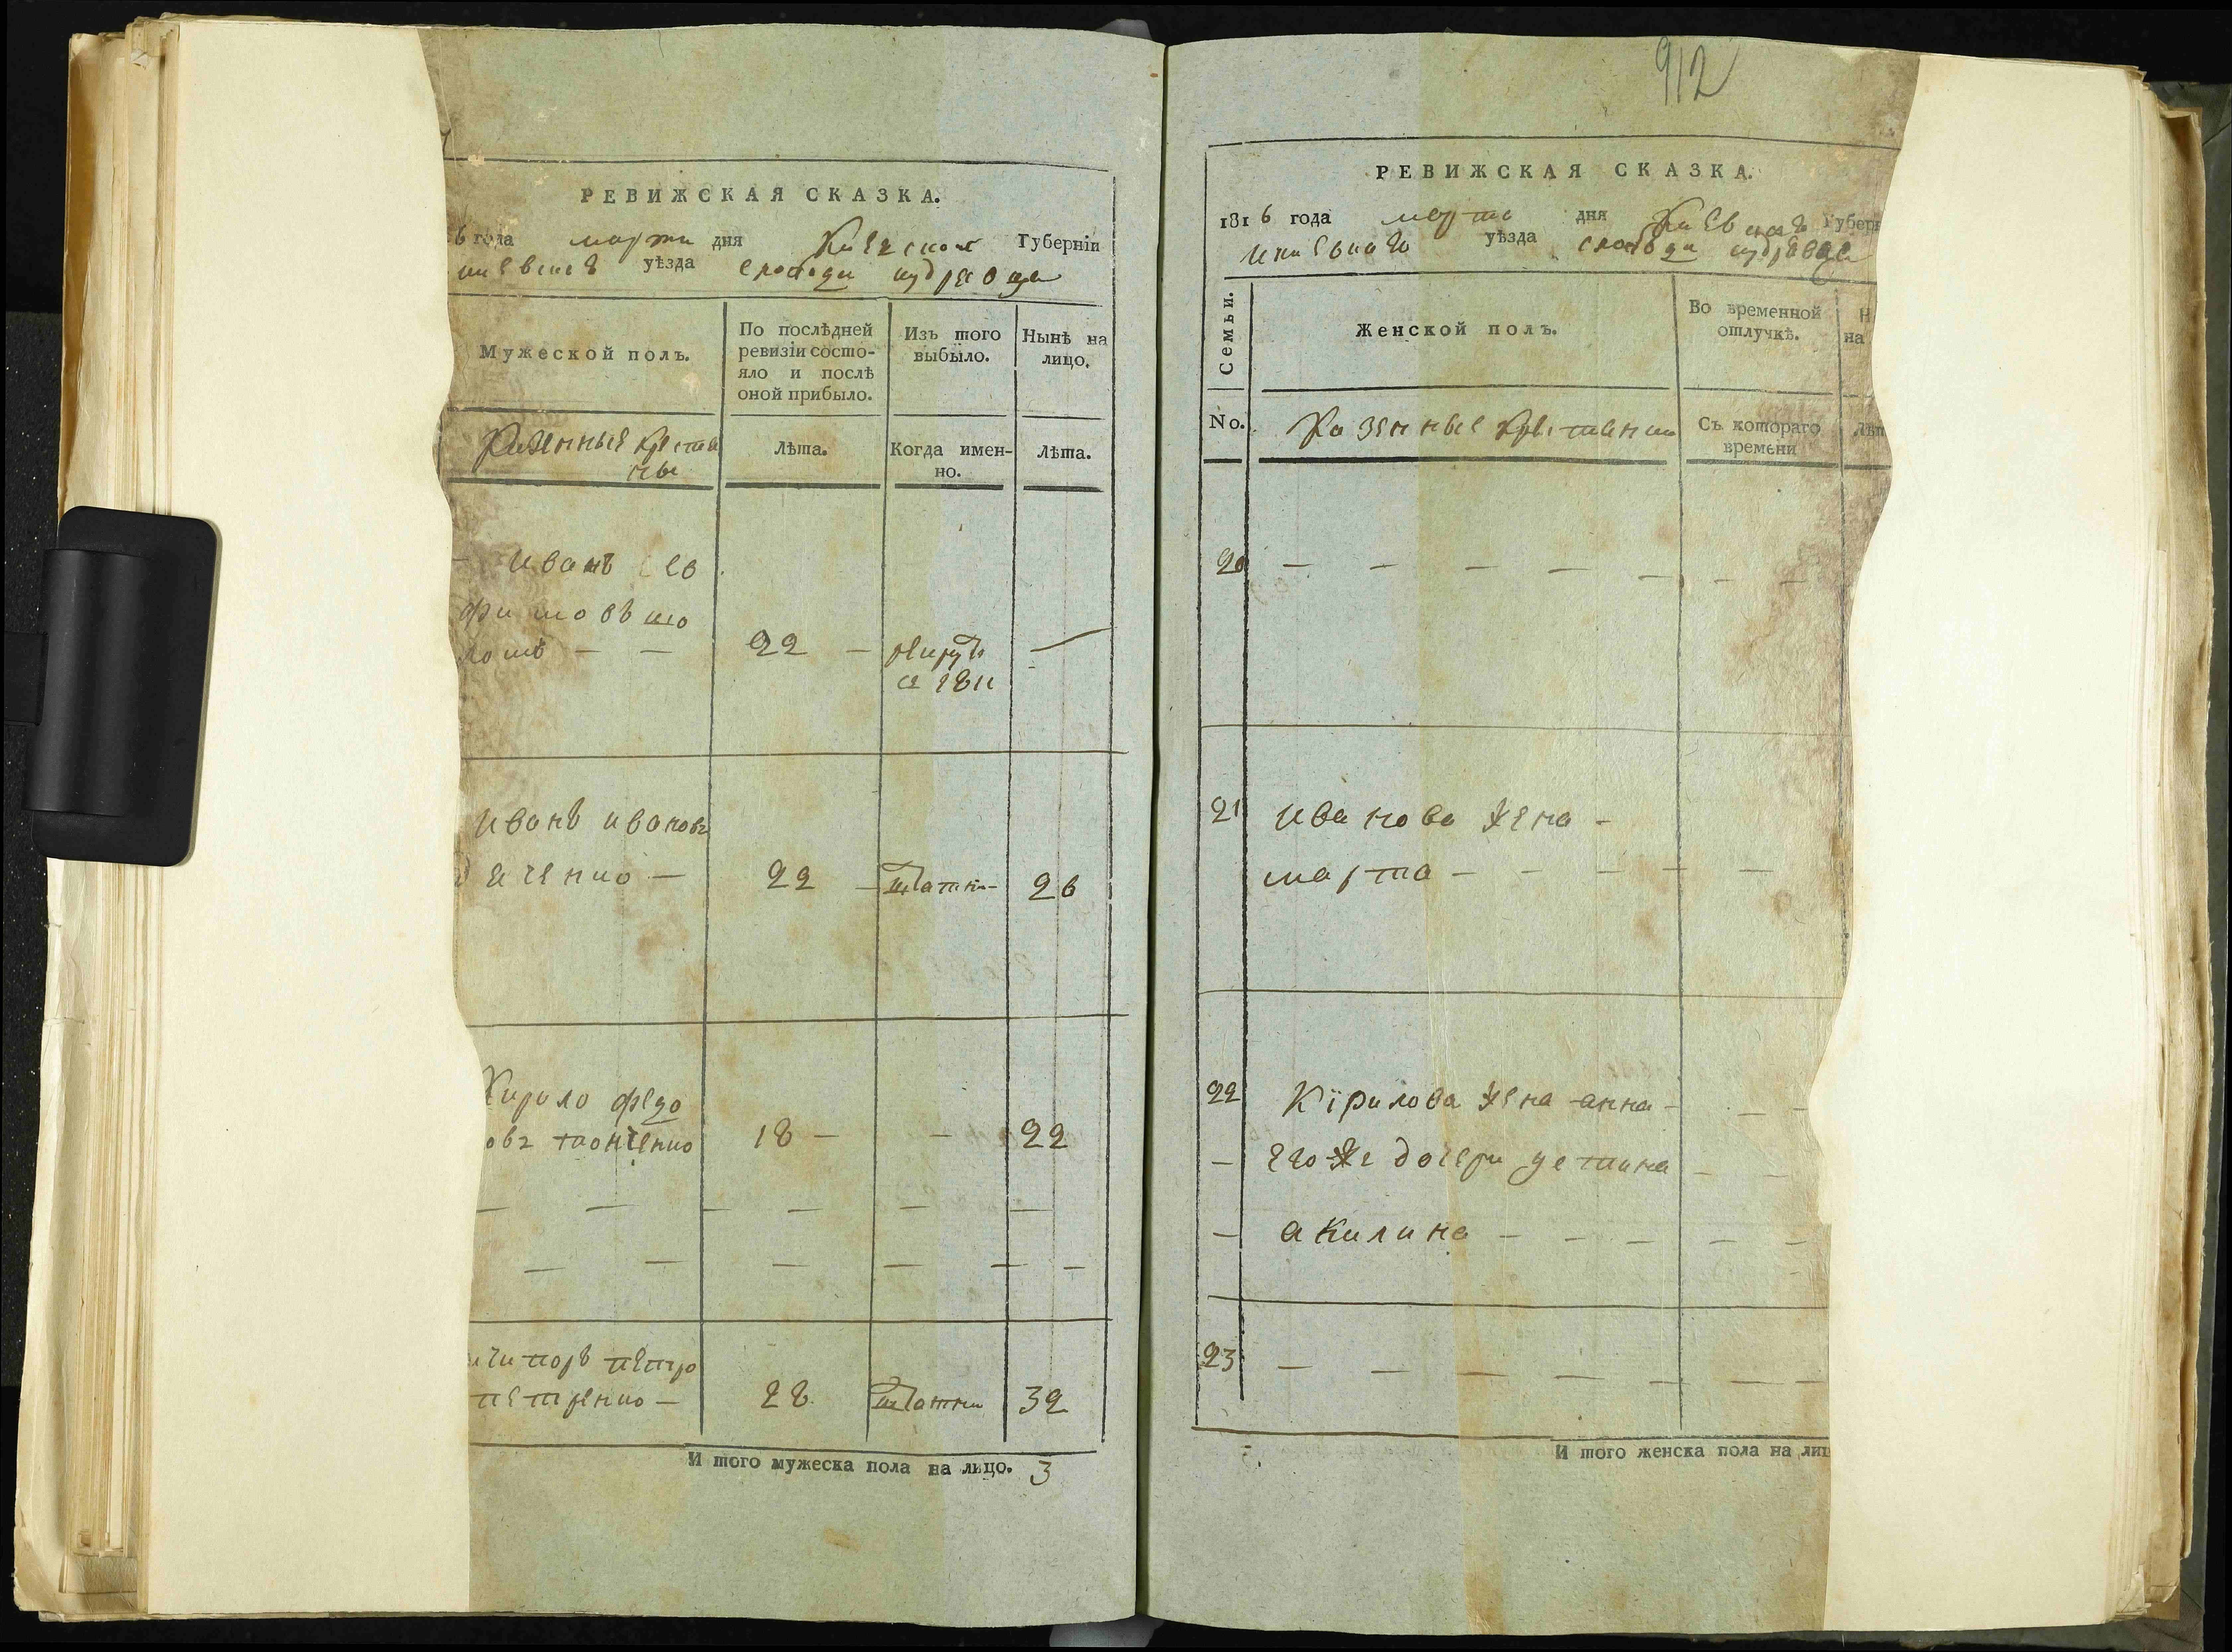 РЕВИЖСКАЯ СКАЗКА.
6 года марта дня Киевской Губерніи
уѣзда слободи кудравца
Мужеской полъ.
По послѣдней ревизіи состо-
яло и послѣ
оной прибыло.
Изъ того
выбыло.
Нынѣ на
лицо.
Казенные крестья
ны
Лѣта.
Когда имен-
но.
Лѣта.
Иванъ
22 — рекрутъ —
1811
Иванъ Ивановъ
22 26
Кирило федо
овъ 18 — — 22
петро
петренко — 28 32
И того мужеска пола на лицо. 3
912
РЕВИЖСКАЯ СКАЗКА.
1816 года марта дня Киевской Губер
уѣзда слободи кудравца
Семьи.
Женской полъ.
Во временной
отлучкѣ.
Н
на
No.
Казенные крестьянки
Съ котораго
времени
Лѣт
20 — — — — — — —
21 Иванова жена —
марта — — — — —
22 Кїрилова жена анна —
— егоже дочери устина
— акилина — — — — —
23 — — — — — — —
И того женска пола на лиц